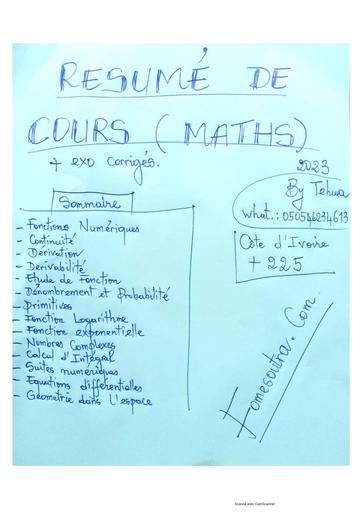 RESUMÉ DE
COURS (MATHS)
+ exo corrigés.
2023
By Tehua
what.: 050546234613
Sommaire
Côte d'Ivoire
+ 225
- Fonctions Numériques
- Continuité
- Dérivation
- Derivabilité
- Etude de Fonction
- Dénombrement et probabilité
- Primitives
- Fonction Logarithme
- Fonction exponentielle
- Nombres Complexes
- Calcul d'Intégral
- Suites numériques
- Equations differentielles
- Géometrie dans l'espace
Fomesoutra.Com
Scanné avec CamScanner